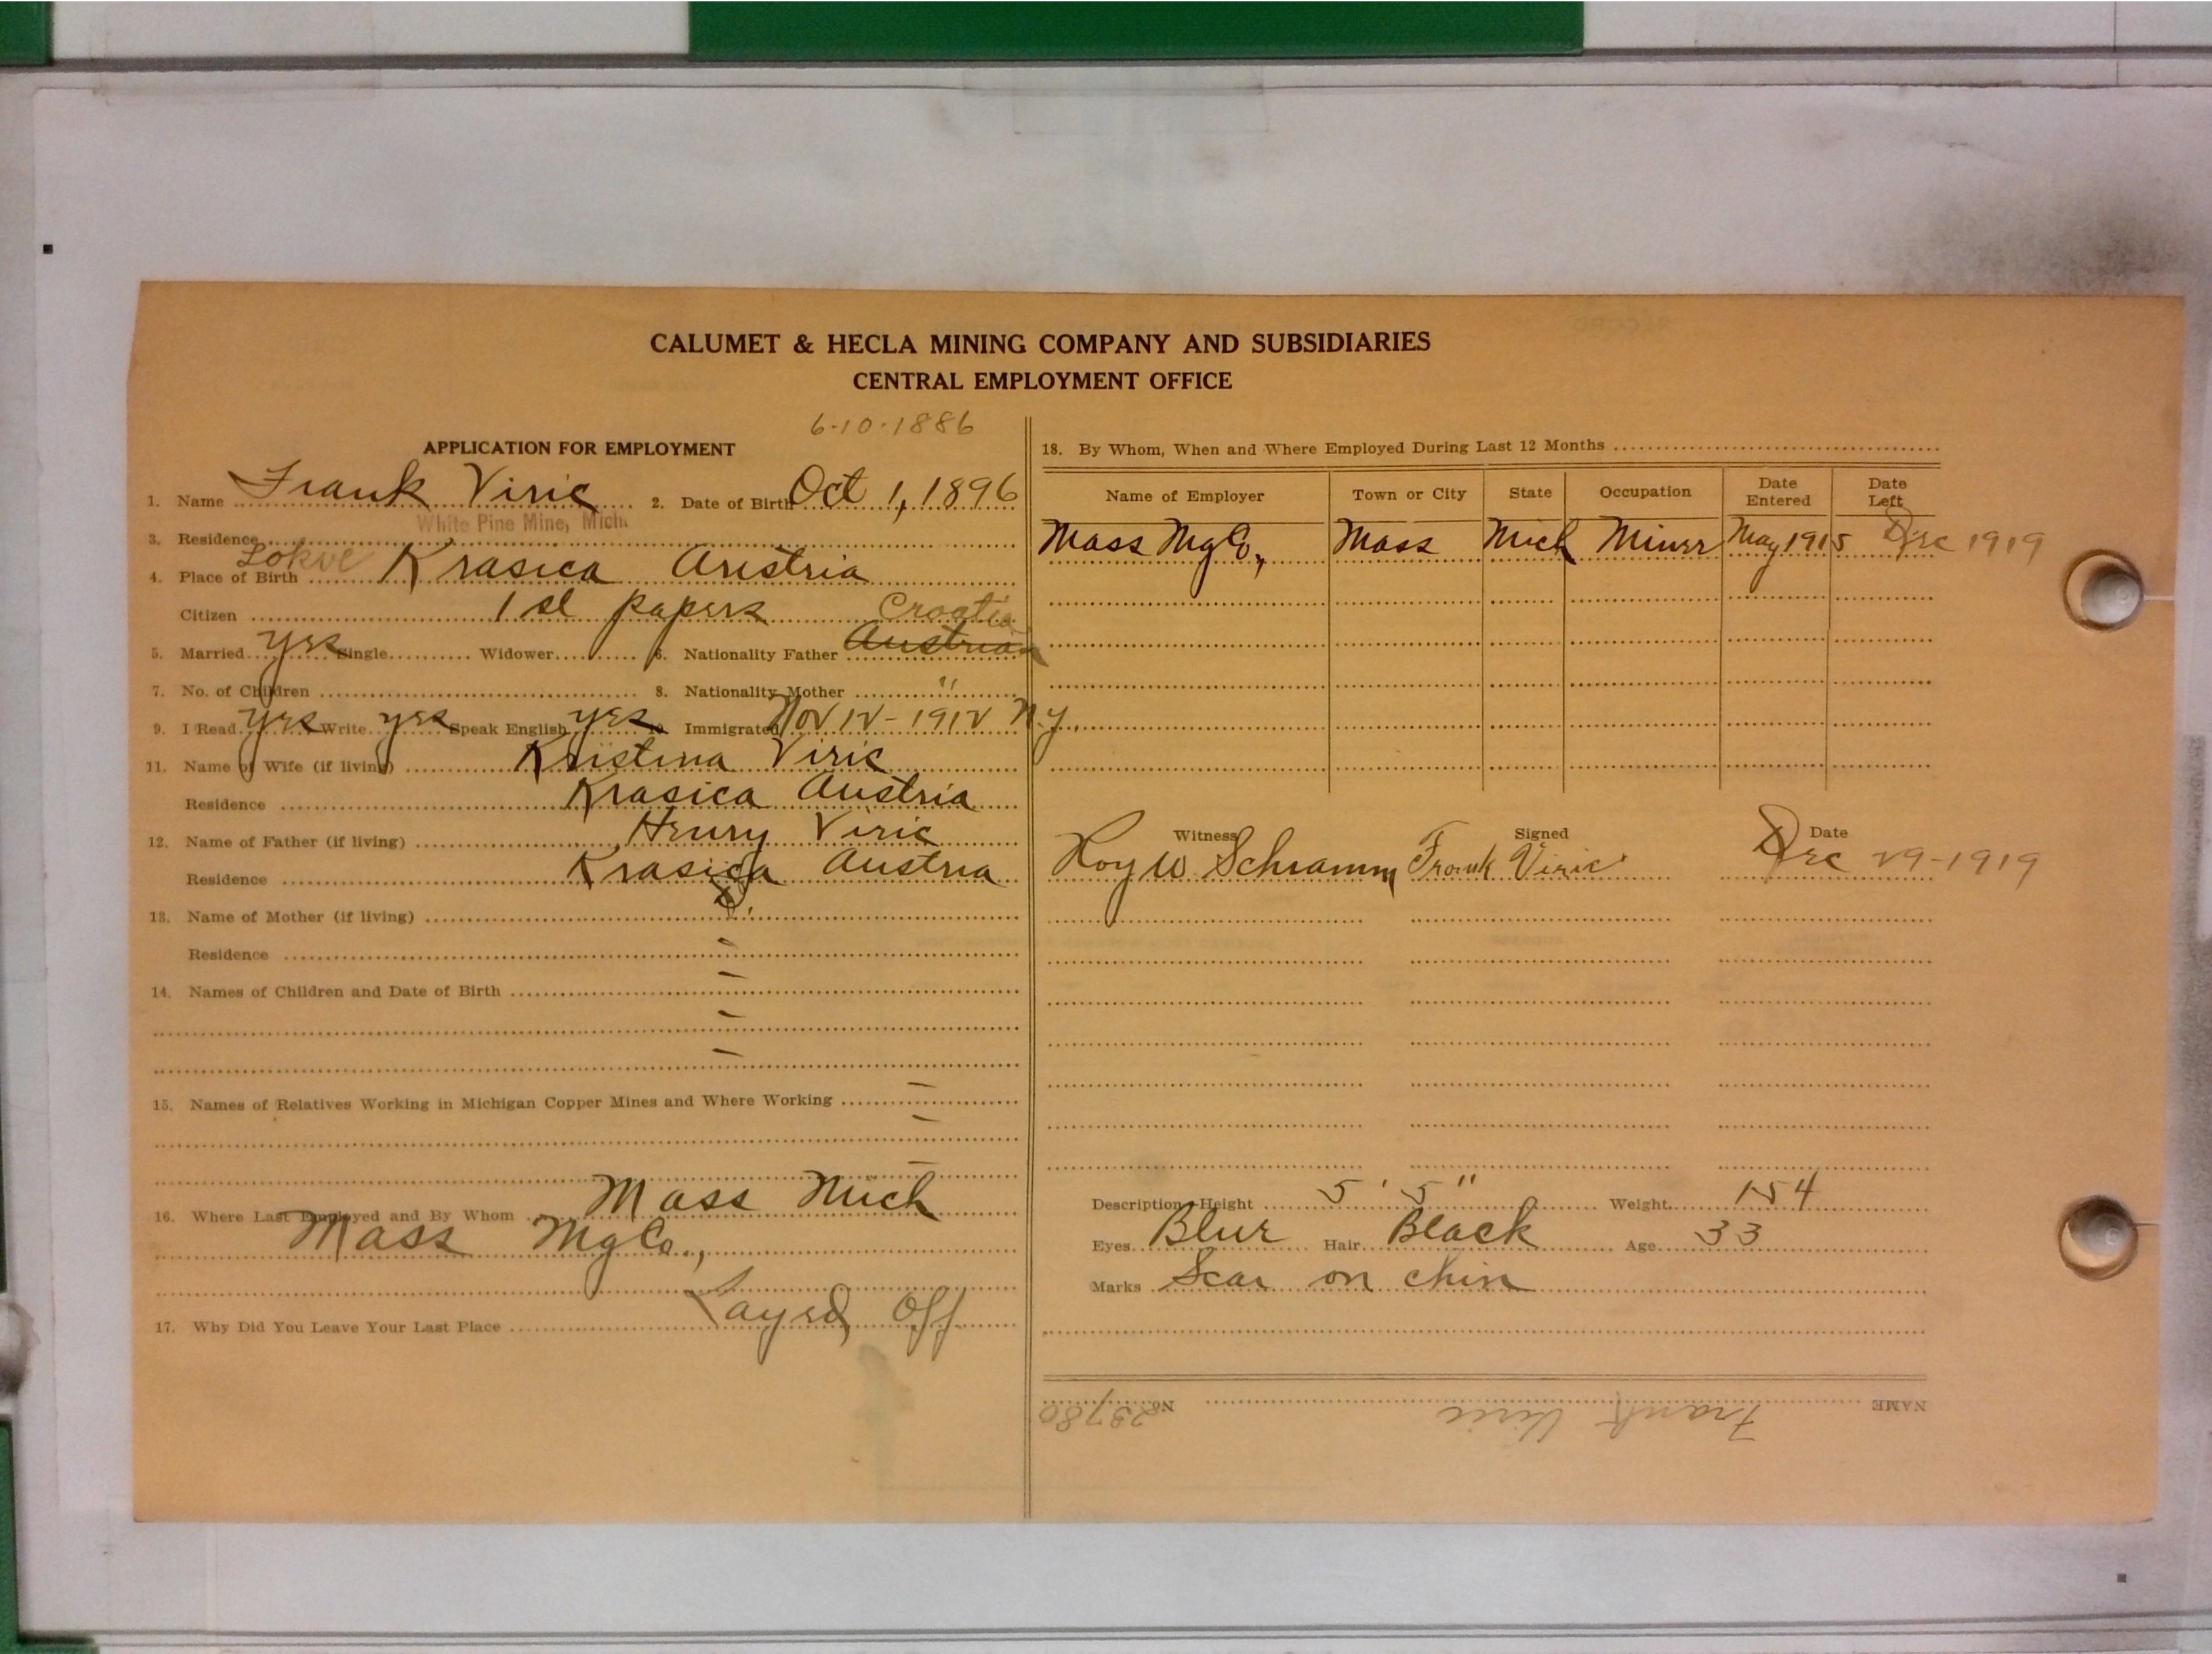 CALUMET & HECLA MINING COMPANY AND SUBSIDIARIES
CENTRAL EMPLOYMENT OFFICE
6-10-1886
APPLICATION FOR EMPLOYMENT
1. Name Frank Viric 2. Date of Birth Oct 1, 1896
White Pine Mine, Mich.
3. Residence
4. Place of Birth Lokve Krasica Austria
Citizen 1st papers Croatia
5. Married yes Single Widower 6. Nationality Father Austrian
7. No. of Children 8. Nationality Mother "
9. I Read yes Write yes Speak English yes 10. Immigrated Nov 12-1912 N.Y.
11. Name of Wife (if living) Kristina Viric
Residence Krasica Austria
12. Name of Father (if living) Henry Viric
Residence Krasica Austria
13. Name of Mother (if living) D.
Residence –
14. Names of Children and Date of Birth –
–
–
15. Names of Relatives Working in Michigan Copper Mines and Where Working –
–
–
16. Where Last Employed and By Whom Mass Mich
Mass Mg Co.,
17. Why Did You Leave Your Last Place Layed Off
18. By Whom, When and Where Employed During Last 12 Months
Name of Employer Town or City State Occupation Date Entered Date Left
Mass Mg Co., Mass Mich Miner May 1915 Dec 1919
Witness Signed Date
Roy W Schramm Frank Viric Dec 29-1919
Description—Height 5' 5" Weight 154
Eyes Blue Hair Black Age 33
Marks Scar on chin
NAME Frank Viric No. 23780